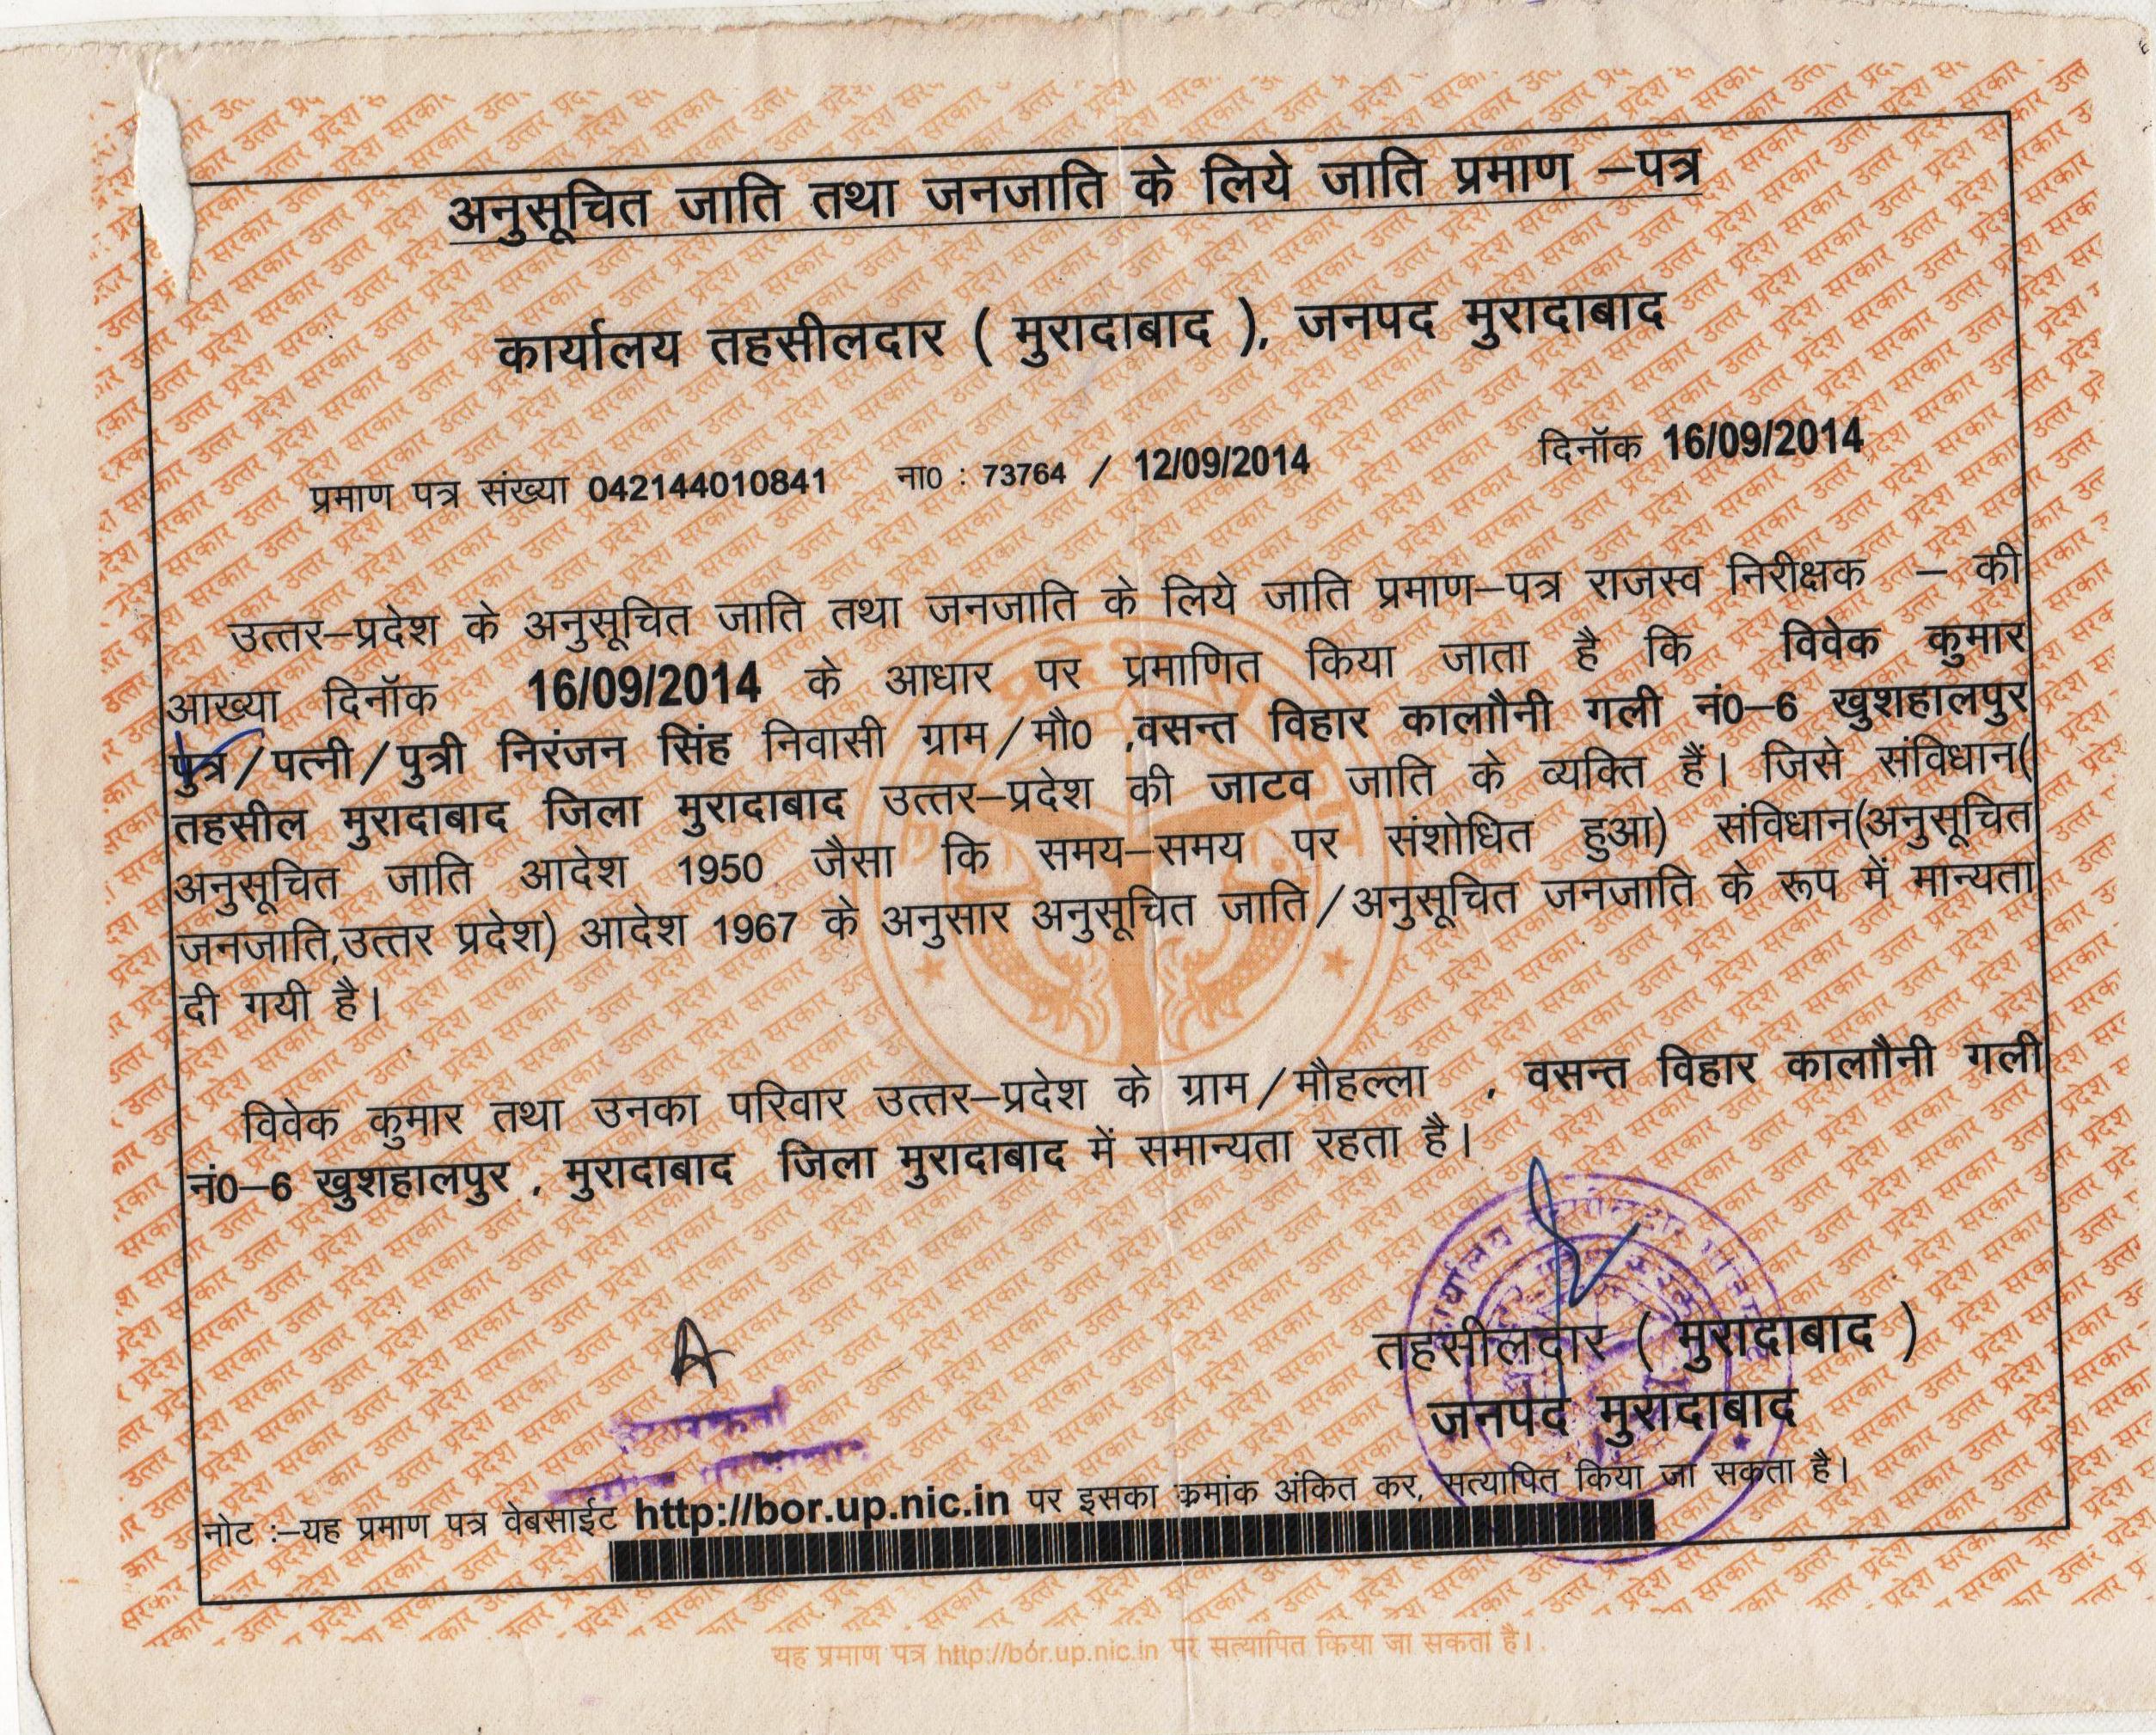 अनुसूचित जाति तथा जनजाति के लिये जाति प्रमाण –पत्र
कार्यालय तहसीलदार ( मुरादाबाद ), जनपद मुरादाबाद
प्रमाण पत्र संख्या 042144010841 ना0 : 73764 / 12/09/2014 दिनॉक 16/09/2014
उत्तर–प्रदेश के अनुसूचित जाति तथा जनजाति के लिये जाति प्रमाण–पत्र राजस्व निरीक्षक – की
आख्या दिनॉक 16/09/2014 के आधार पर प्रमाणित किया जाता है कि विवेक कुमार
पुत्र/पत्नी/पुत्री निरंजन सिंह निवासी ग्राम/मौ0 ,वसन्त विहार कालाौनी गली नं0–6 खुशहालपुर
तहसील मुरादाबाद जिला मुरादाबाद उत्तर–प्रदेश की जाटव जाति के व्यक्ति हैं। जिसे संविधान(
अनुसूचित जाति आदेश 1950 जैसा कि समय–समय पर संशोधित हुआ) संविधान(अनुसूचित
जनजाति,उत्तर प्रदेश) आदेश 1967 के अनुसार अनुसूचित जाति/अनुसूचित जनजाति के रूप में मान्यता
दी गयी है।
विवेक कुमार तथा उनका परिवार उत्तर–प्रदेश के ग्राम/मौहल्ला , वसन्त विहार कालाौनी गली
नं0–6 खुशहालपुर , मुरादाबाद जिला मुरादाबाद में समान्यता रहता है।
तहसीलदार ( मुरादाबाद )
जनपद मुरादाबाद
नोट :–यह प्रमाण पत्र वेबसाईट http://bor.up.nic.in पर इसका क्रमांक अंकित कर, सत्यापित किया जा सकता है।
यह प्रमाण पत्र http://bor.up.nic.in पर सत्यापित किया जा सकता है।